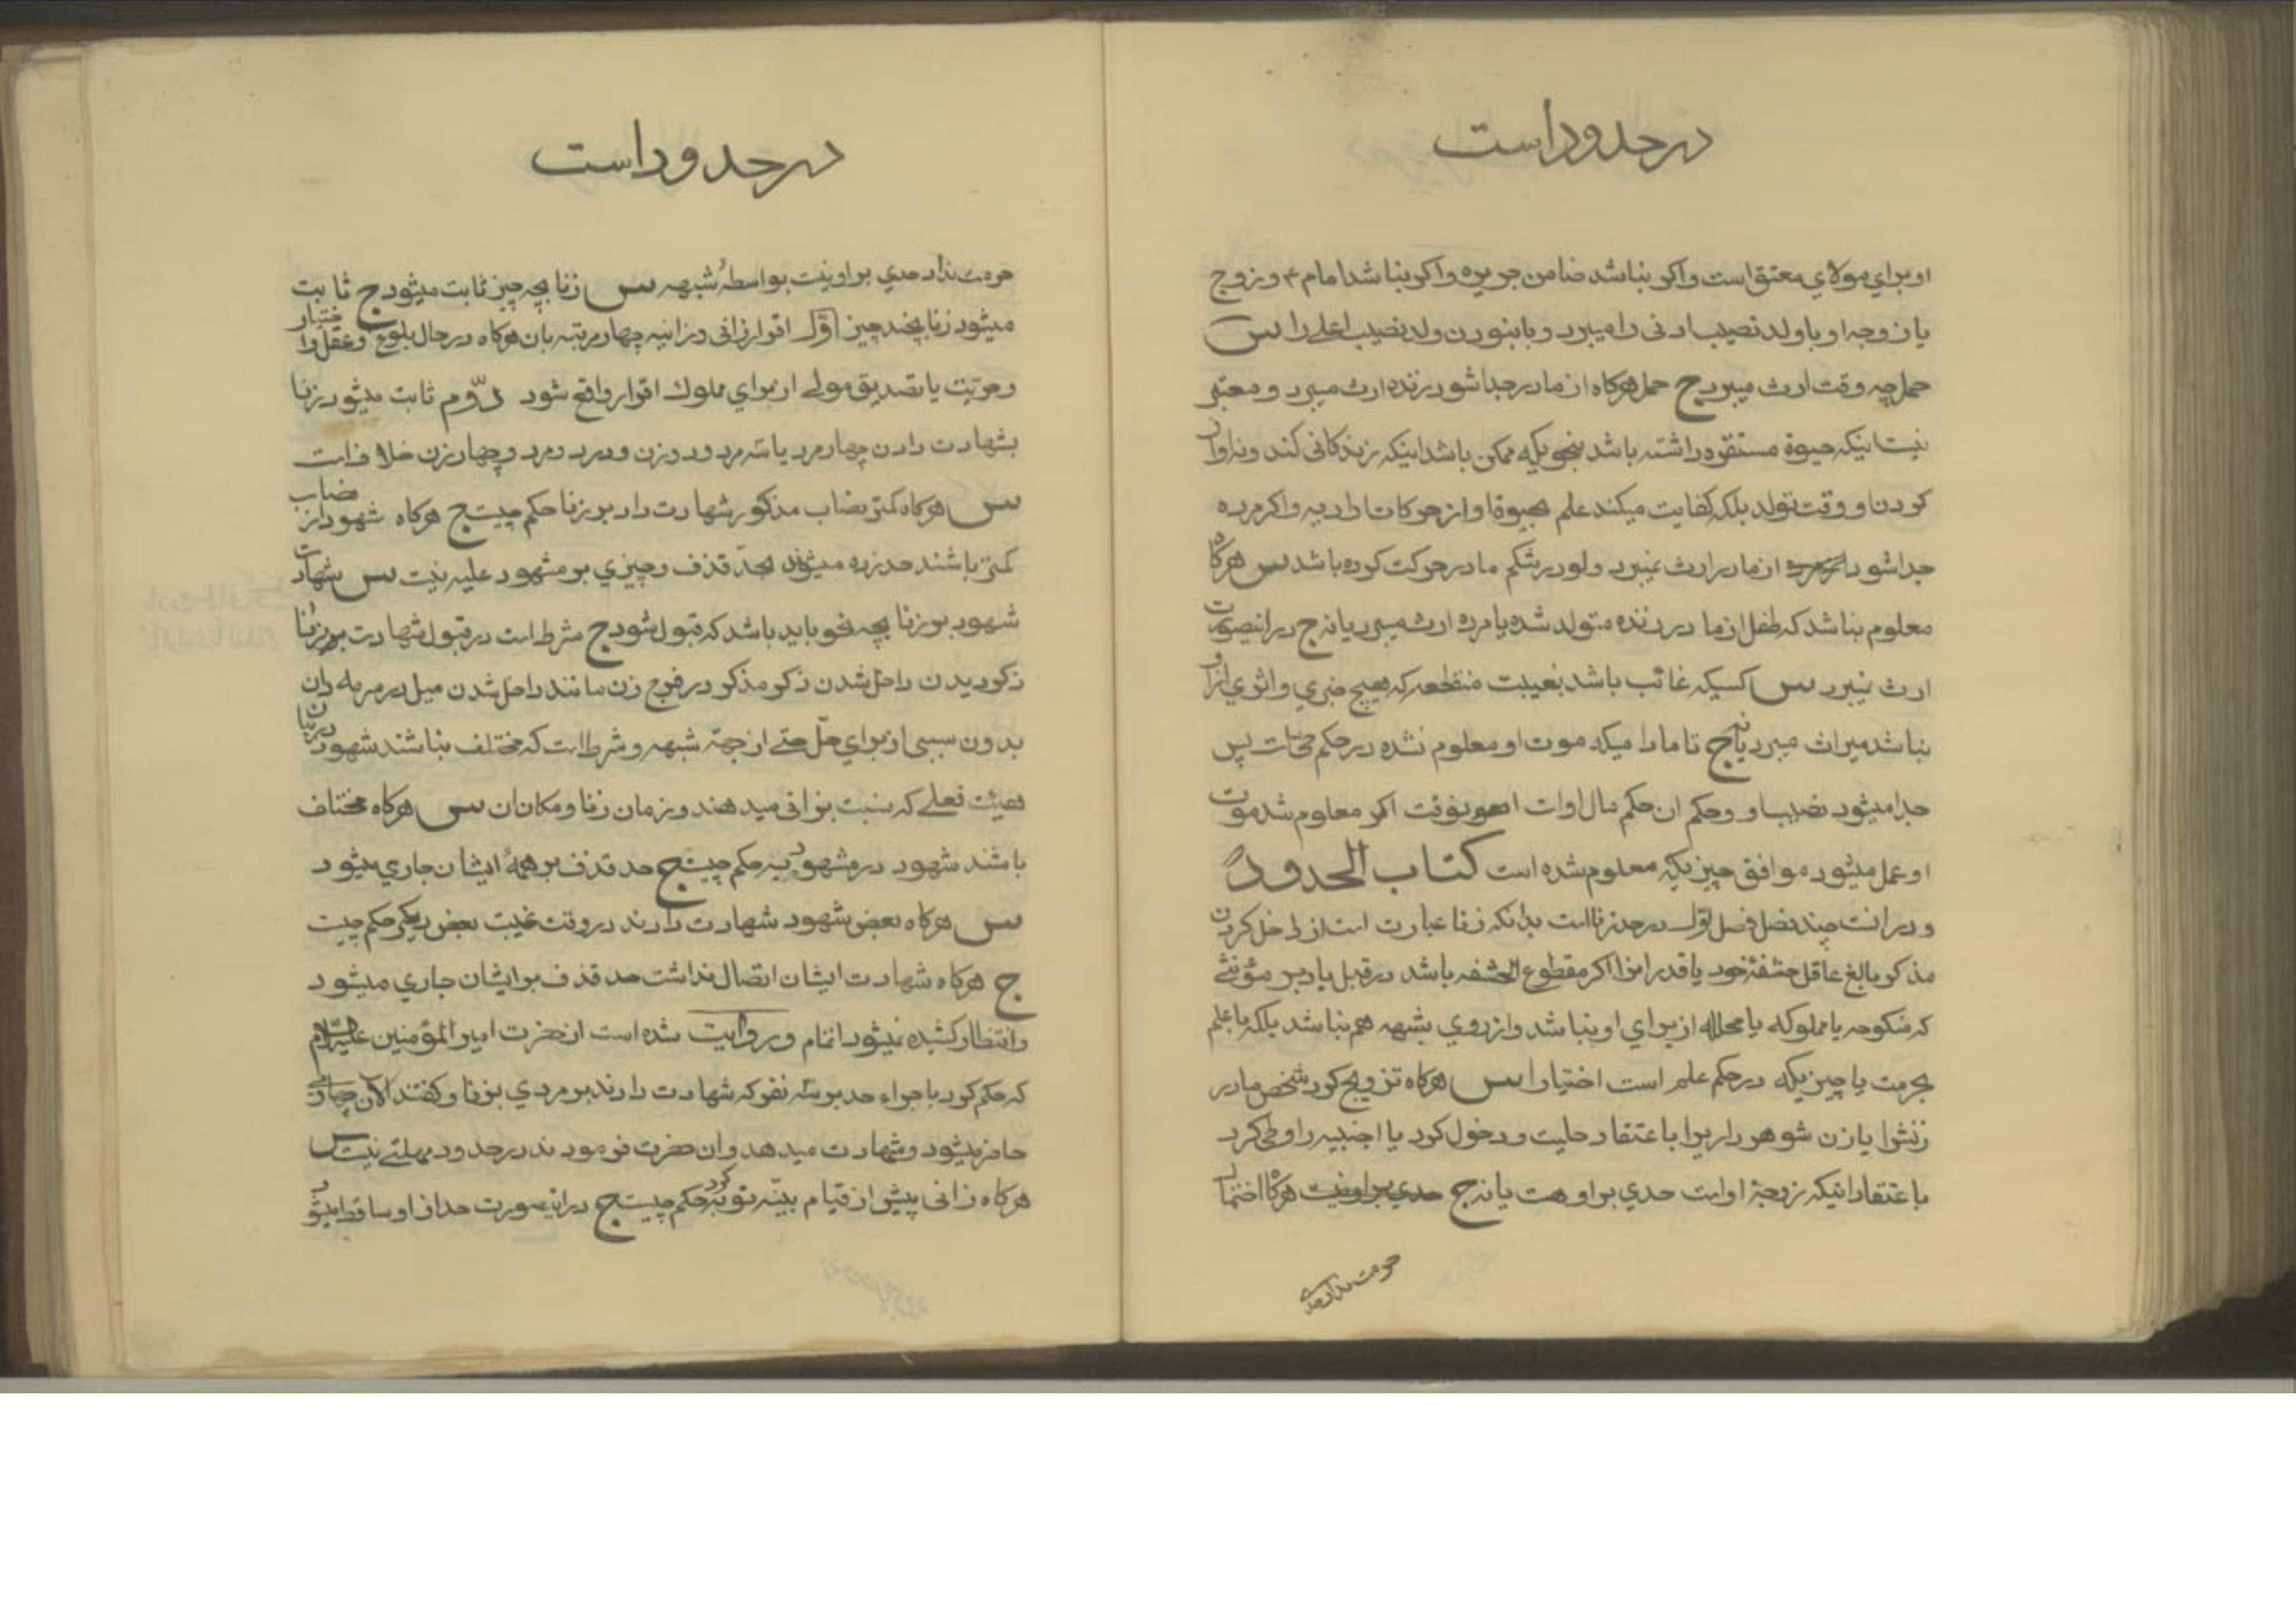 درحدوداست
او برای مولای معتق است واکر نباشد ضامن جریره واکر نباشد امام ۴ و زوج
یا زوجه او با ولد نصیب ادنی را میبرد و با نبودن ولد نصیب اعلی را س
حمل چه وقت ارث میبرد ج حمل هرکاه از مادر جدا شود زنده ارث میبرد و معتبر
نیست اینکه حیوة مستقره داشته باشد بنحویکه ممکن باشد اینکه زندکانی کند ونه اواز
کردن او وقت تولد بلکه کفایت میکند علم بحیوة او از حرکات ارادیه واکر مرده
جدا شود از مادر ارث نمیبرد ولو در شکم مادر حرکت کرده باشد س هرکاه
معلوم نباشد که طفل از مادر زنده متولد شده یا مرده ارث میبرد یا نه ج در اینصورت
ارث نمیبرد س کسیکه غائب باشد بغیبت منقطعه که هیچ خبری و اثری از او
نباشد میراث میبرد یا نه ج تا مادامیکه موت او معلوم نشده در حکم حیات پس
جدا میشود نصیب او وحکم ان حکم مال اوات اکر معلوم شد موت
او عمل میشود موافق چیزیکه معلوم شده است کتاب الحدود
و در انست چند فصل فصل اول در حد زنا است بدانکه زنا عبارت است از داخل کردن
مذکر بالغ عاقل حشفهٔ خود یا قدر انرا اکر مقطوع الحشفه باشد در قبل یا دبر مؤنثی
که منکوحه یا مملوکه یا محلله از برای او نباشد و از روی شبهه هم نباشد بلکه با علم
بحرمت یا چیزیکه در حکم علم است اختیارا س هرکاه تزویج کرد شخص مادر
زنش را یا زن شوهر دار یرا با عتقاد حلیت و دخول کرد یا اجنبیه را وطی کرد
با عتقاد اینکه زوجهٔ اوست حدی بر او هست یا نه ج حدی بر او نیست هرکاه احتمال
حرمت نداد حدی
درحدوداست
حرمت نداد حدی بر او نیست بواسطهٔ شبهه س زنا بچه چیز ثابت میشود ج ثابت
میشود زنا بچند چیز اول اقرار زانی و زانیه چهار مرتبه بان هرکاه در حال بلوغ وعقل واختیار
وحریت یا تصدیق مولی از برای مملوک اقرار واقع شود دوم ثابت میشود زنا
بشهادت دادن چهار مرد یا سه مرد و دو زن و در دو مرد و چهار زن خلاف است
س هرکاه کمتر نصاب مذکور شهادت داد بر زنا حکم چیست ج هرکاه شهود از نصاب
کمتر باشند حد زده میشوند بحد قذف و چیزی بر مشهود علیه نیست س شهادت
شهود بر زنا بچه نحو باید باشد که قبول شود ج شرط است در قبول شهادت بر زنا
ذکر دیدن داخل شدن ذکر مذکر در فرج زن مانند داخل شدن میل در سرمه دان
بدون سببی از برای حل حتی از جهة شبهه و شرط است که مختلف نباشند شهود در بیان
هیئت فعلی که نسبت بزانی میدهند و زمان زنا و مکان ان س هرکاه مختلف
باشند شهود در مشهود به حکم چیست ج حد قذف بر همهٔ ایشان جاری میشود
س هرکاه بعض شهود شهادت دادند در وقت غیبت بعض دیکر حکم چیست
ج هرکاه شهادت ایشان اتصال نداشت حد قذف بر ایشان جاری میشود
وانتظار کشیده نمیشود اتمام و روایت شده است از حضرت امیر المؤمنین علیه السلام
که حکم کرد با جراء حد بر سه نفر که شهادت دادند بر مردی بزنا و کفتند الان چهارمی
حاضر میشود و شهادت میدهد و ان حضرت فرمود ند در حدود مهلتی نیست س
هرکاه زانی پیش از قیام بینه توبه کرد حکم چیست ج در اینصورت حد از او ساقط میشود